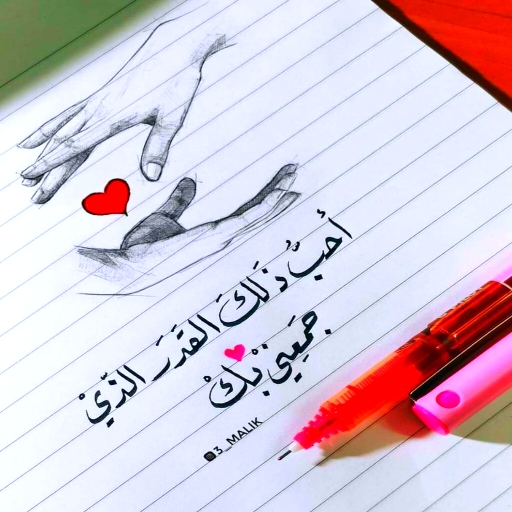 أحبُّ ذلَكَ القَدَرَ الذّيْ
جمَعِني بْكْ
@3_MALIK